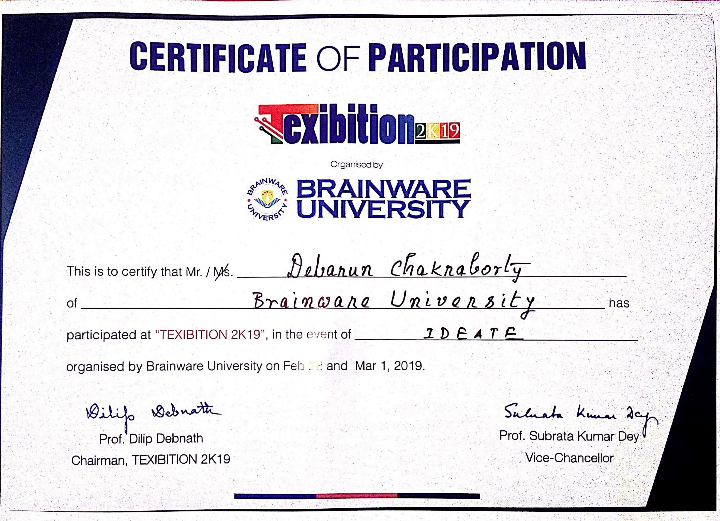 CERTIFICATE OF PARTICIPATION
Texibition 2K19
Organised by
BRAINWARE UNIVERSITY
BRAINWARE
UNIVERSITY
This is to certify that Mr. / Ms. Debarun Chakraborty
of Brainware University has
participated at "TEXIBITION 2K19", in the event of IDEATE
organised by Brainware University on Feb and Mar 1, 2019.
Dilip Debnath
Subrata Kumar Dey
Prof. Dilip Debnath
Prof. Subrata Kumar Dey
Chairman, TEXIBITION 2K19
Vice-Chancellor